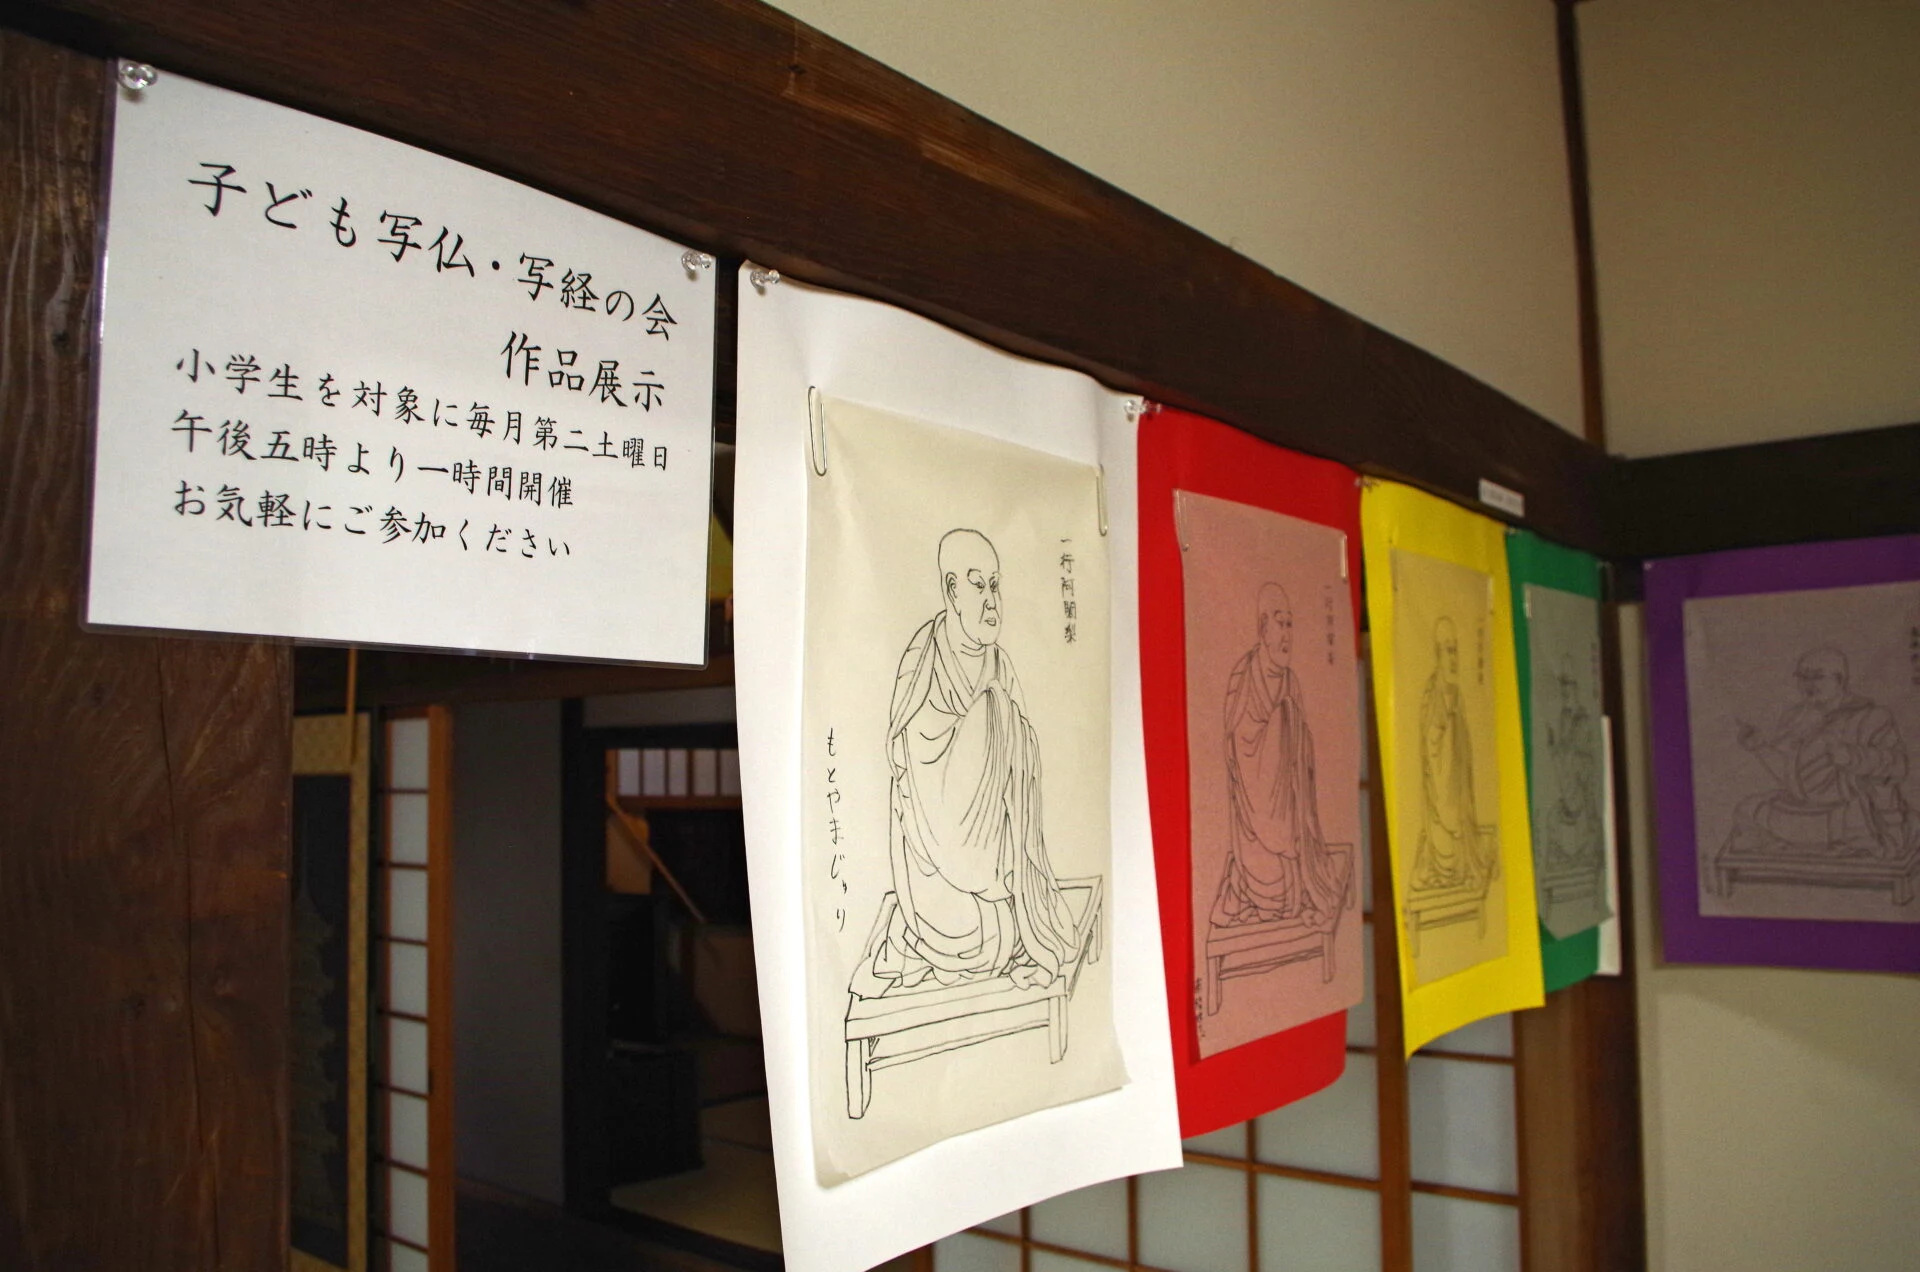 子ども写仏・写経の会
作品展示
小学生を対象に毎月第二土曜日
午後五時より一時間開催
お気軽にご参加ください
一行阿闍梨
もとやまじゅり